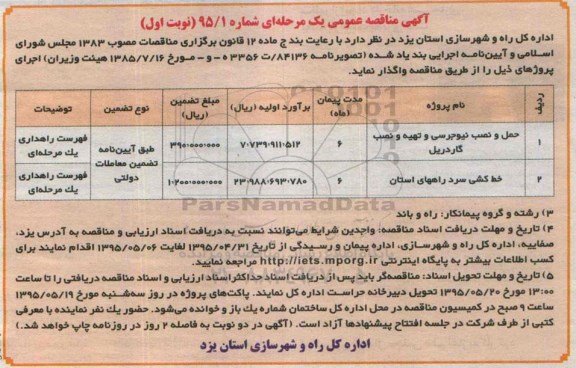 آگهی مناقصه عمومی یک مرحله‌ای شماره ۹۵/۱ (نوبت اول)
اداره کل راه و شهرسازی استان یزد در نظر دارد با رعایت بند ج ماده ۱۲ قانون برگزاری مناقصات مصوب ۱۳۸۳ مجلس شورای
اسلامی و آیین‌نامه اجرایی بند یاد شده (تصویرنامه ۸۴۱۳۶/ت ۳۳۵۶ ه - و - مورخ ۱۳۸۵/۷/۱۶ هیئت وزیران) اجرای
پروژهای ذیل را از طریق مناقصه واگذار نماید.
ردیف نام پروژه مدت پیمان (ماه) برآورد اولیه (ریال) مبلغ تضمین (ریال) نوع تضمین توضیحات
۱ حمل و نصب نیوجرسی و تهیه و نصب گاردریل ۶ ۷۰۷۳۹۰۹۱۱۰۵۱۲ ۳۹۰۰۰۰۰۰۰۰ طبق آیین‌نامه تضمین معاملات دولتی فهرست راهداری یک مرحله‌ای
۲ خط کشی سرد راههای استان ۶ ۲۳۰۹۸۸۰۶۹۳۰۷۸۰ ۱۰۲۰۰۰۰۰۰۰۰۰ فهرست راهداری یک مرحله‌ای
۳) رشته و گروه پیمانکار: راه و باند
۴) تاریخ و مهلت دریافت اسناد مناقصه: واجدین شرایط می‌توانند نسبت به دریافت اسناد ارزیابی و مناقصه به آدرس یزد،
صفاییه، اداره کل راه و شهرسازی، اداره پیمان و رسیدگی از تاریخ ۱۳۹۵/۰۴/۳۱ لغایت ۱۳۹۵/۰۵/۰۶ اقدام نمایند برای
کسب اطلاعات بیشتر به پایگاه اینترنتی http://iets.mporg.ir مراجعه نمایید.
۵) تاریخ و مهلت تحویل اسناد: مناقصه‌گر باید پس از دریافت اسناد حداکثر اسناد ارزیابی و اسناد مناقصه دریافتی را تا ساعت
۱۳:۰۰ مورخ ۱۳۹۵/۰۵/۲۰ تحویل دبیرخانه حراست اداره کل نمایند. پاکت‌های پروژه در روز سه‌شنبه مورخ ۱۳۹۵/۰۵/۱۹
ساعت ۹ صبح در کمیسیون مناقصه در محل اداره کل ساختمان شماره یک باز و خوانده می‌شود. حضور یک نفر نماینده با معرفی
کتبی از طرف شرکت در جلسه افتتاح پیشنهادها آزاد است. (آگهی در دو نوبت به فاصله ۲ روز در روزنامه چاپ خواهد شد.)
اداره کل راه و شهرسازی استان یزد
ParsNamadData